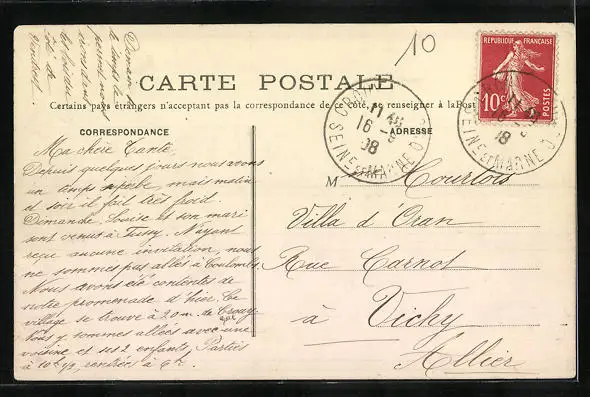 10
RÉPUBLIQUE FRANÇAISE
10c
POSTES
CARTE POSTALE
Certains pays étrangers n'acceptent pas la correspondance de ce côté, se renseigner à la Post
CORRESPONDANCE
ADRESSE
16
08
SEINE-ET-MARNE
Ma chère Tante
Depuis quelques jours nous avons
un temps superbe, mais matin
et soir il fait très froid.
Dimanche, Louise et son mari
sont venus à Jossy. N'ayant
reçu aucune invitation, nous
ne sommes pas allés à Coulombs.
Nous avons été contentes de
notre promenade d'hier. Ce
village se trouve à 20 m. de
Nous y sommes allées avec une
voisine et ses 2 enfants. Parties
à rentrées à 6h.
M Courtois
Villa d'Oran
Rue Carnot
à Vichy
Allier